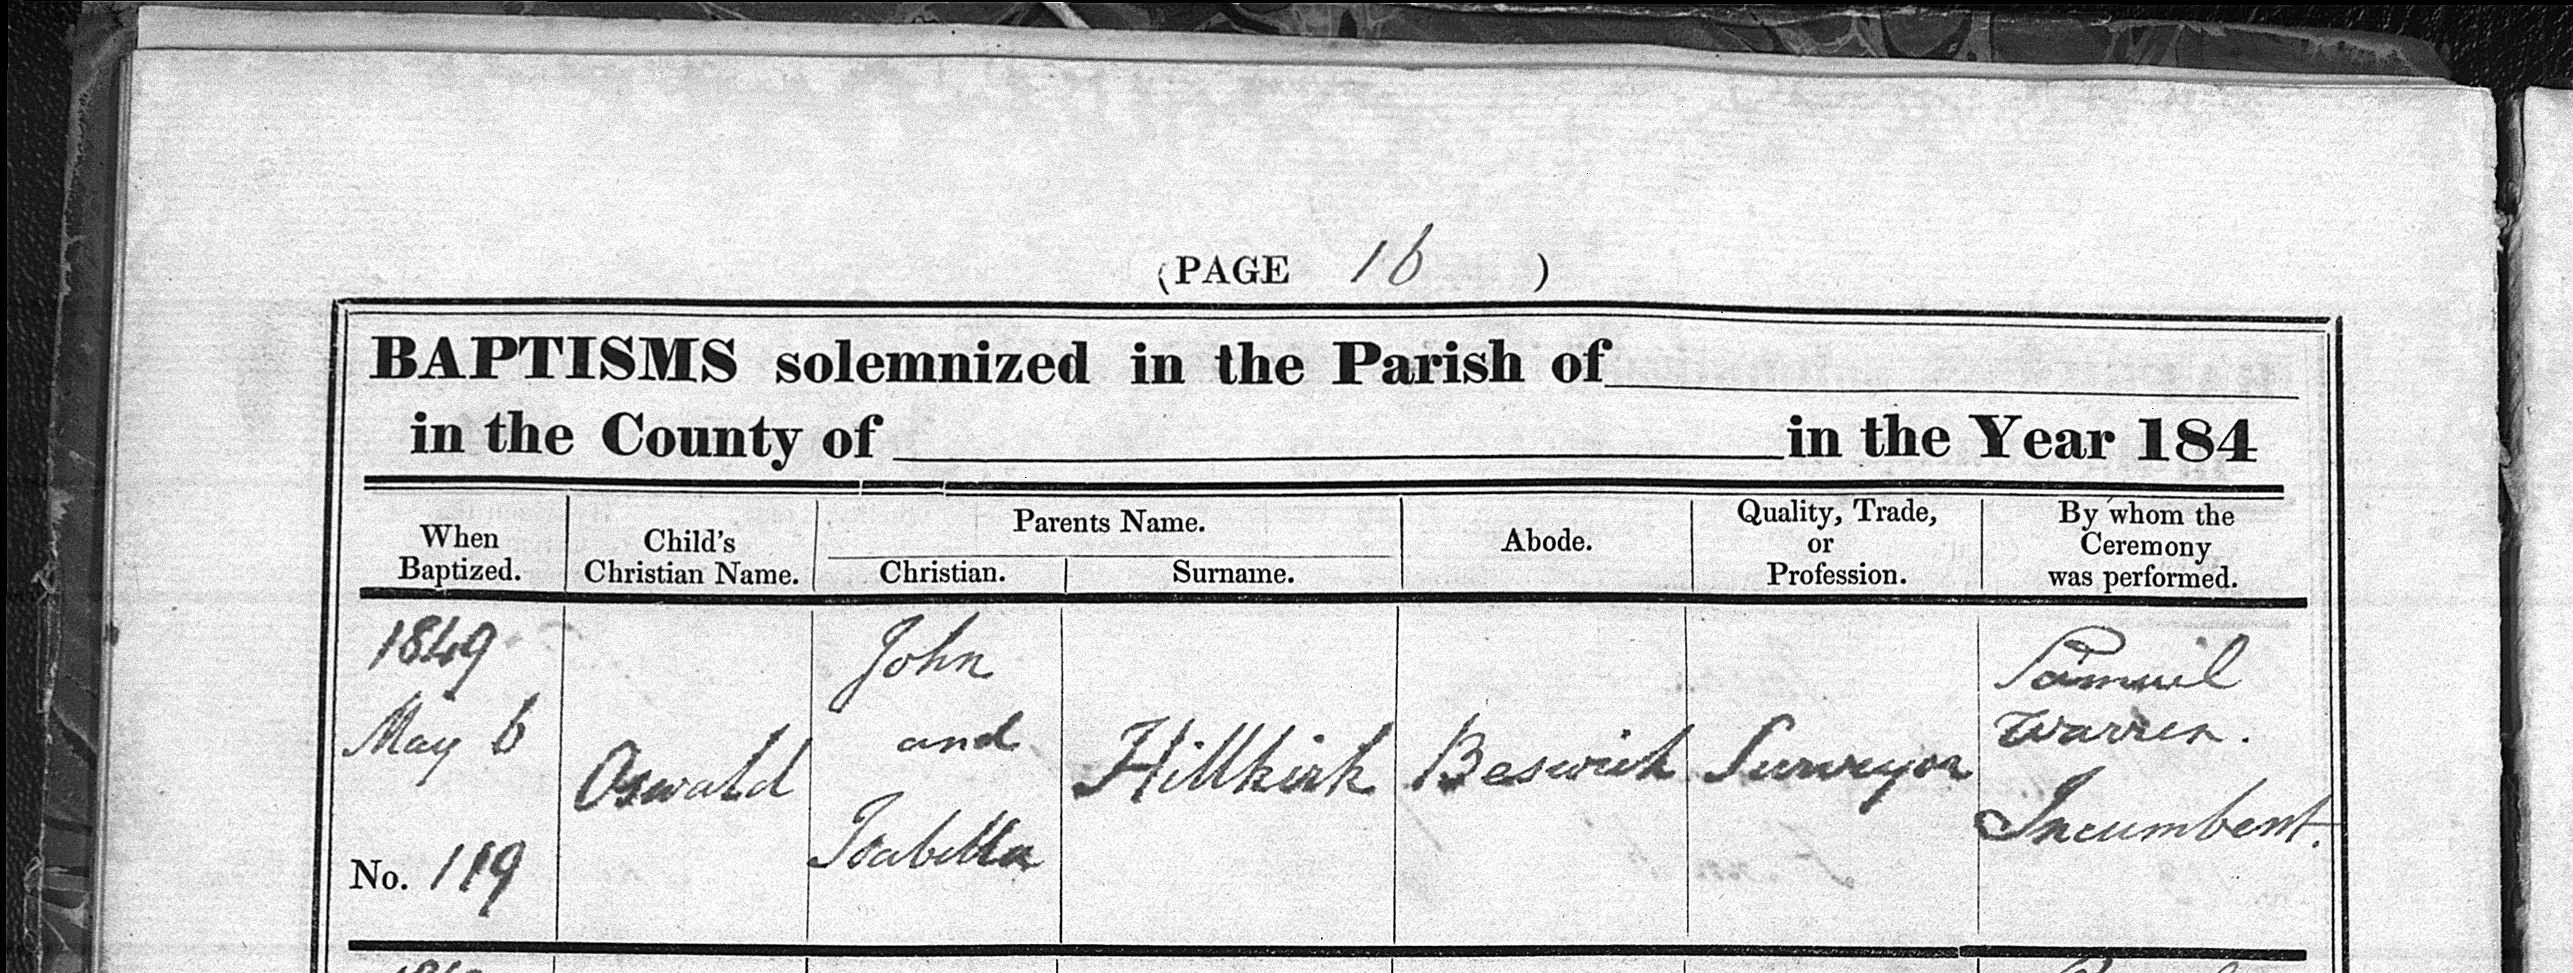 (PAGE 16 )
BAPTISMS solemnized in the Parish of
in the County of in the Year 184
When Baptized.
Child's Christian Name.
Parents Name.
Christian.
Surname.
Abode.
Quality, Trade, or Profession.
By whom the Ceremony was performed.
1849
May 6
No. 119
Oswald
John
and
Isabella
Hillkirk
Beswick
Surveyor
Samuel
Warren.
Incumbent.